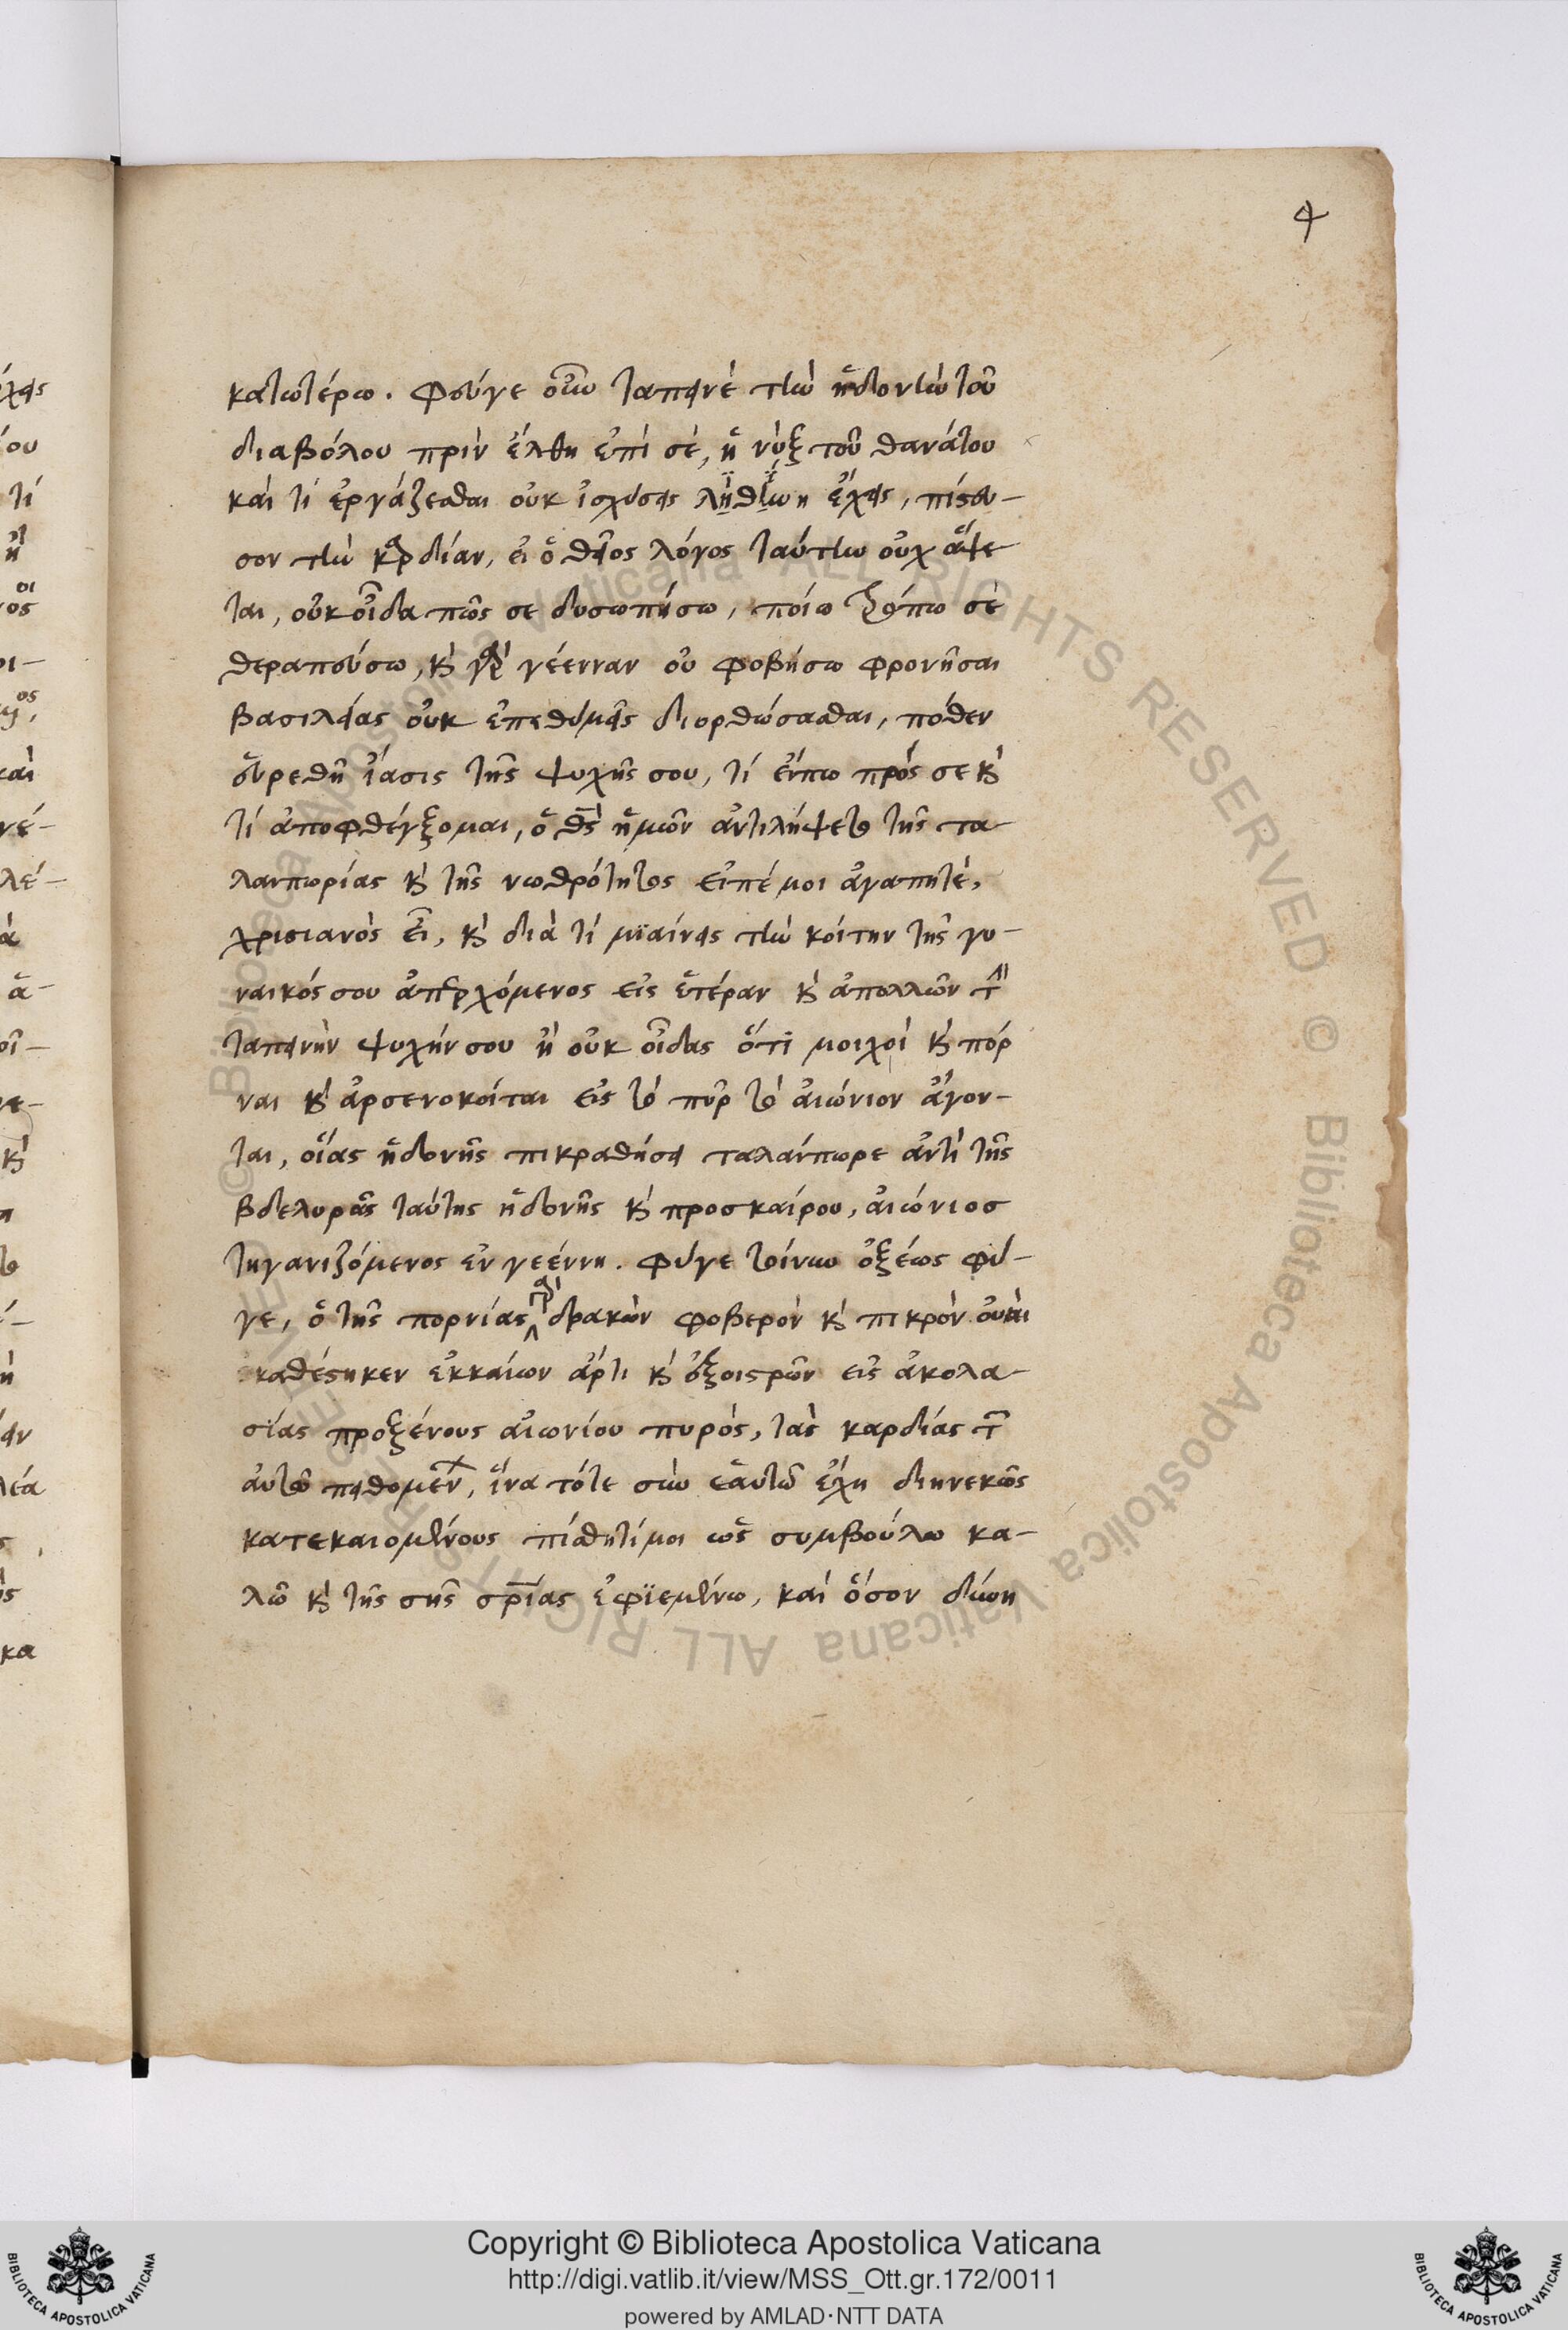 4
κατωτέρω. Φεύγε οὖν ταπεινὲ τὴν ἡδονὴν τοῦ
διαβόλου πρὶν ἔλθη ἐπὶ σὲ, ἡ νὺξ τοῦ θανάτου
καὶ τί ἐργάζεσθαι οὐκ ἰσχύσεις ἔχεις, πίστω-
σον τὴν καρδίαν, εἰ ὁ θεῖος λόγος ταύτην οὐχ ἅψε
ται, οὐκ οἶδα πῶς σε δυσωπήσω, ποίω τρόπω σὲ
θεραπεύσω, κὶ γὰρ γέενναν οὐ φοβήσω φρονῆσαι
βασιλείας οὐκ ἐπεθυμεῖς διορθώσασθαι, πόθεν
εὑρεθῆ ἴασις τῆς ψυχῆς σου, τί εἴπω πρός σε κὶ
τί ἀποφθέγξομαι, ὁ θς ἡμῶν ἀντιλήψετο τῆς τα
λαιπωρίας κὶ τῆς νωθρότητος εἰπέ μοι ἀγαπητέ,
χριστιανὸς εἶ, κὶ διὰ τί μϊαίνεις τὴν κοίτην τῆς γυ-
ναικός σου ἀπερχόμενος εἰς ἑτέραν κὶ ἀπολλῶν τὴν
ταπεινὴν ψυχήν σου ἢ οὐκ οἶδας ὅτι μοιχοὶ κὶ πόρ
ναι κὶ ἀρσενοκοίται εἰς τὸ πῦρ τὸ αἰώνιον ἄγον-
ται, οἵας ἡδονῆς πικραθήσει ταλαίπωρε ἀντὶ τῆς
βδελυρᾶς ταύτης ἡδονῆς κὶ προσκαίρου, αἰώνιοσ
τηγανιζόμενος ἐν γεέννη. φύγε τοίνυν ὀξέως φύ-
γε, ὁ τῆς πορνίας δρακὼν φοβερὸν κὶ πικρὸν
καθέστηκεν ἐκκαίων ἄρτι κὶ ἐξοιστρῶν εἰς ἀκολα-
σίας προξένους αἰωνίου πυρὸς, τὰς καρδίας τῶν
αὐτῶ πειθομένων, ἵνα τότε σὺν ἑαυτῶ ἔχη διηνεκῶς
κατεκαιομένους πίσθητί μοι ὡς συμβούλω κα-
λῶ κὶ τῆς σῆς σρίας ἐφϊεμένω, καὶ ὅσον δύνη
Copyright © Biblioteca Apostolica Vaticana
http://digi.vatlib.it/view/MSS_Ott.gr.172/0011
powered by AMLAD·NTT DATA